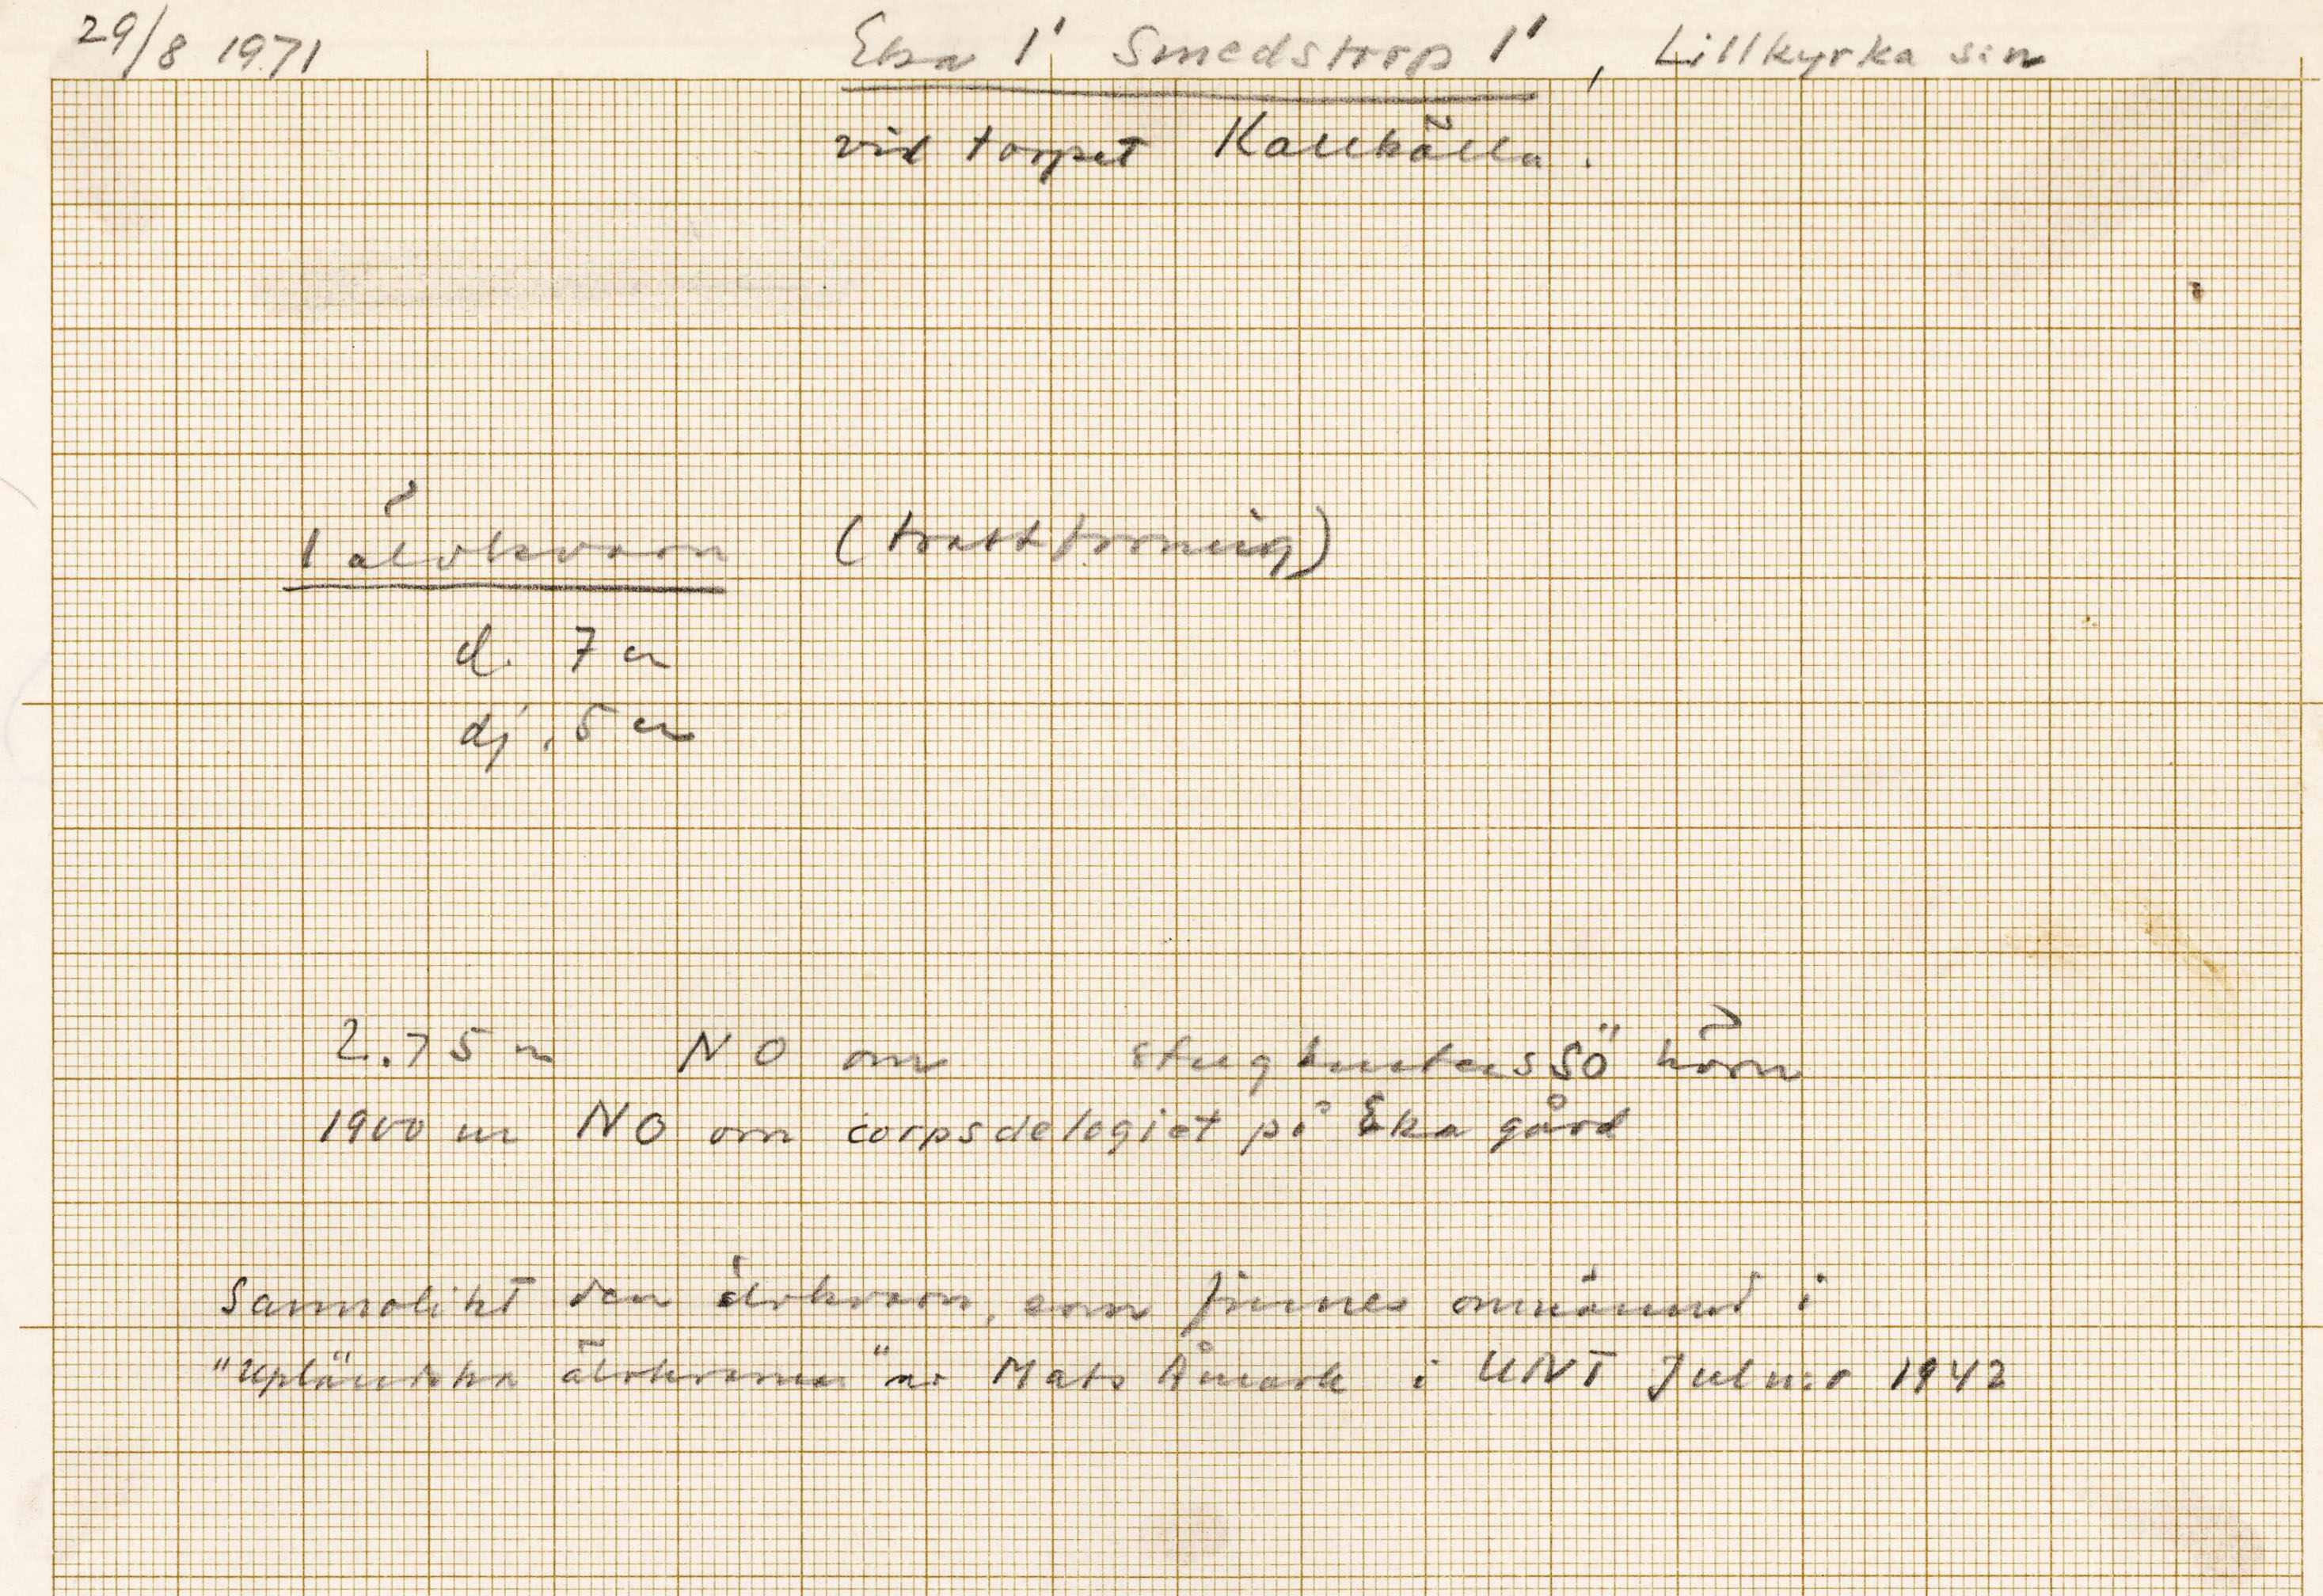 29/8 1971 Eka 1' Smedstorp 1', Lillkyrka s:n
vid torpet Kallkälla.
1 älvkvarn (trattformig)
d. 7 cm
dj. 5 cm
2.75 m NO om stugknutens SÖ hörn
1900 m NO om corpsdelogiet på Eka gård
Sannolikt den älvkvarn, som finnes omnämnd i
"Upländska älvkvarnar" av Mats Åmark i UNT Juln:r 1942